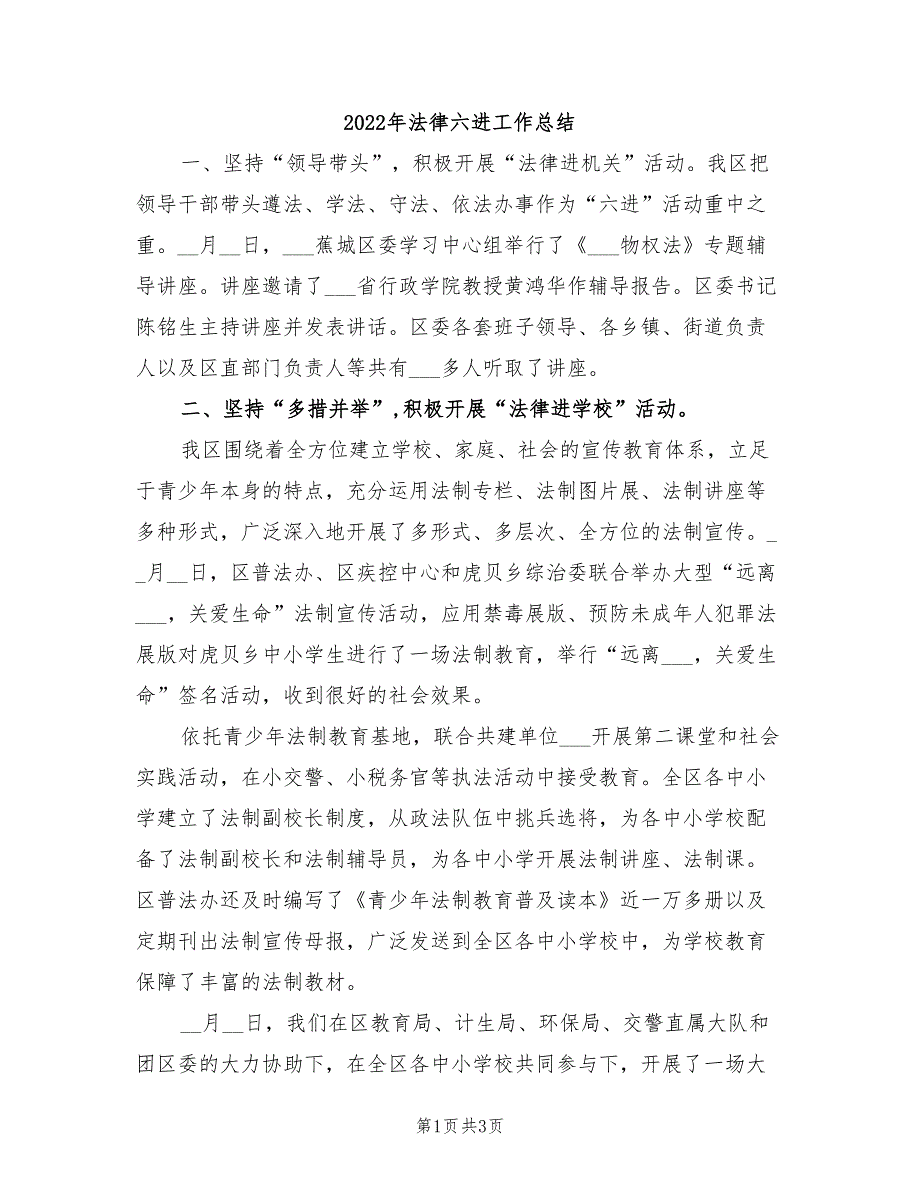 2022年法律六进工作总结
一、坚持“领导带头”，积极开展“法律进机关”活动。我区把
领导干部带头遵法、学法、守法、依法办事作为“六进”活动重中之
重。__月__日，___蕉城区委学习中心组举行了《___物权法》专题辅
导讲座。讲座邀请了___省行政学院教授黄鸿华作辅导报告。区委书记
陈铭生主持讲座并发表讲话。区委各套班子领导、各乡镇、街道负责
人以及区直部门负责人等共有___多人听取了讲座。
二、坚持“多措并举”,积极开展“法律进学校”活动。
我区围绕着全方位建立学校、家庭、社会的宣传教育体系，立足
于青少年本身的特点，充分运用法制专栏、法制图片展、法制讲座等
多种形式，广泛深入地开展了多形式、多层次、全方位的法制宣传。__
_月__日，区普法办、区疾控中心和虎贝乡综治委联合举办大型“远离
___，关爱生命”法制宣传活动，应用禁毒展版、预防未成年人犯罪法
展版对虎贝乡中小学生进行了一场法制教育，举行“远离___，关爱生
命”签名活动，收到很好的社会效果。
依托青少年法制教育基地，联合共建单位___开展第二课堂和社会
实践活动，在小交警、小税务官等执法活动中接受教育。全区各中小
学建立了法制副校长制度，从政法队伍中挑兵选将，为各中小学校配
备了法制副校长和法制辅导员，为各中小学开展法制讲座、法制课。
区普法办还及时编写了《青少年法制教育普及读本》近一万多册以及
定期刊出法制宣传母报，广泛发送到全区各中小学校中，为学校教育
保障了丰富的法制教材。
__月__日，我们在区教育局、计生局、环保局、交警直属大队和
团区委的大力协助下，在全区各中小学校共同参与下，开展了一场大
第1页共3页